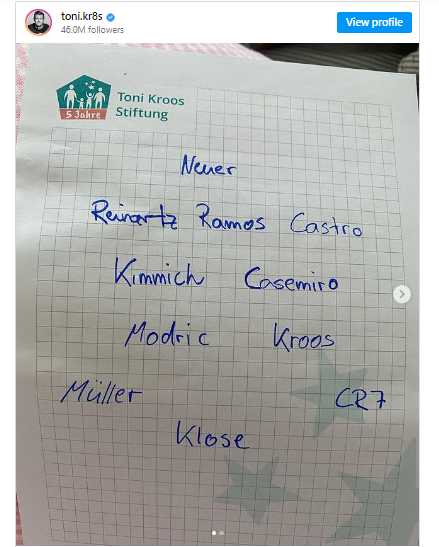 toni.kr8s
46.0M followers
View profile
5 Jahre
Toni Kroos
Stiftung
Neuer
Reinartz Ramos Castro
Kimmich Casemiro
Modric Kroos
Müller CR7
Klose